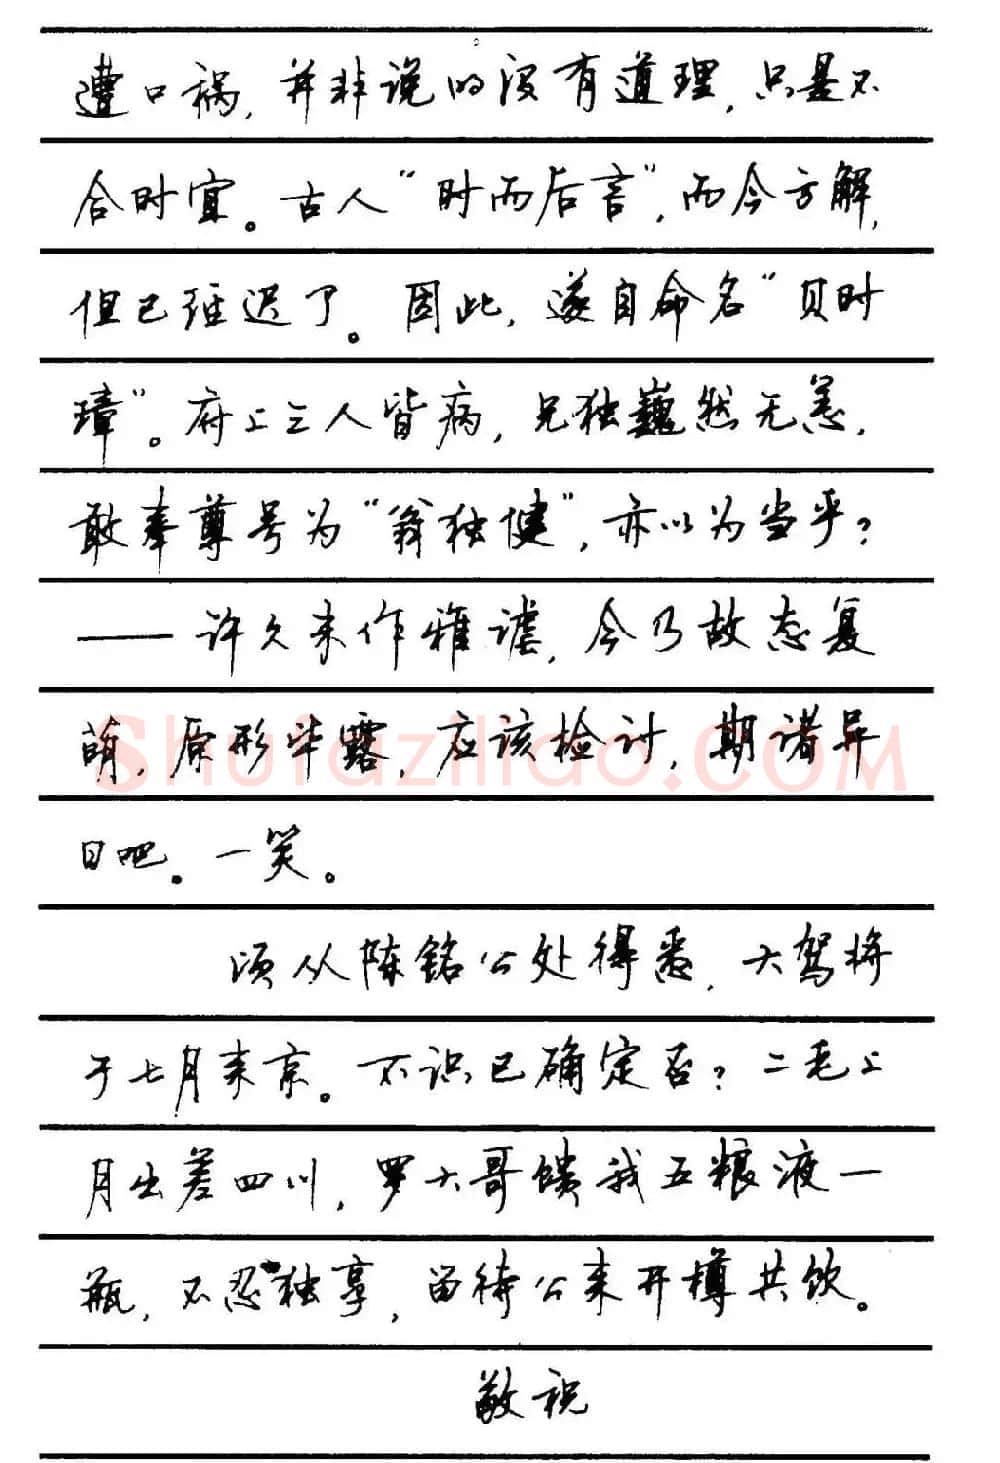 遭口祸，并非说的没有道理，只是不
合时宜。古人“时而后言”，而今方解，
但已经迟了。因此，遂自命名“贝时
璋”。府上三人皆病，兄独巍然无恙，
敢奉尊号为“翁独健”，亦以为当乎？
——许久未作雅谑，今乃故态复
萌，原形毕露，应该检讨，期诸异
日吧。一笑。
顷从陈铭公处得悉，大驾将
于七月来京。不识已确定否？二毛上
月出差四川，罗大哥馈我五粮液一
瓶，不忍独享，留待公来开樽共饮。
敬祝
Shufaziliao.com